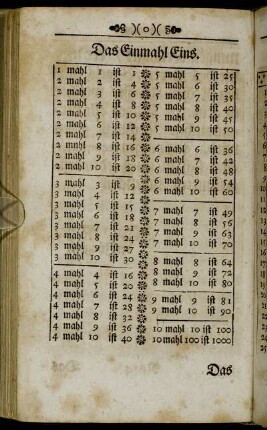 )(o)(
Das Einmahl Eins.
1 mahl 1 ist 1
2 mahl 2 ist 4
2 mahl 3 ist 6
2 mahl 4 ist 8
2 mahl 5 ist 10
2 mahl 6 ist 12
2 mahl 7 ist 14
2 mahl 8 ist 16
2 mahl 9 ist 18
2 mahl 10 ist 20
3 mahl 3 ist 9
3 mahl 4 ist 12
3 mahl 5 ist 15
3 mahl 6 ist 18
3 mahl 7 ist 21
3 mahl 8 ist 24
3 mahl 9 ist 27
3 mahl 10 ist 30
4 mahl 4 ist 16
4 mahl 5 ist 20
4 mahl 6 ist 24
4 mahl 7 ist 28
4 mahl 8 ist 32
4 mahl 9 ist 36
4 mahl 10 ist 40
5 mahl 5 ist 25
5 mahl 6 ist 30
5 mahl 7 ist 35
5 mahl 8 ist 40
5 mahl 9 ist 45
5 mahl 10 ist 50
6 mahl 6 ist 36
6 mahl 7 ist 42
6 mahl 8 ist 48
6 mahl 9 ist 54
6 mahl 10 ist 60
7 mahl 7 ist 49
7 mahl 8 ist 56
7 mahl 9 ist 63
7 mahl 10 ist 70
8 mahl 8 ist 64
8 mahl 9 ist 72
8 mahl 10 ist 80
9 mahl 9 ist 81
9 mahl 10 ist 90
10 mahl 10 ist 100
10 mahl 100 ist 1000
Das